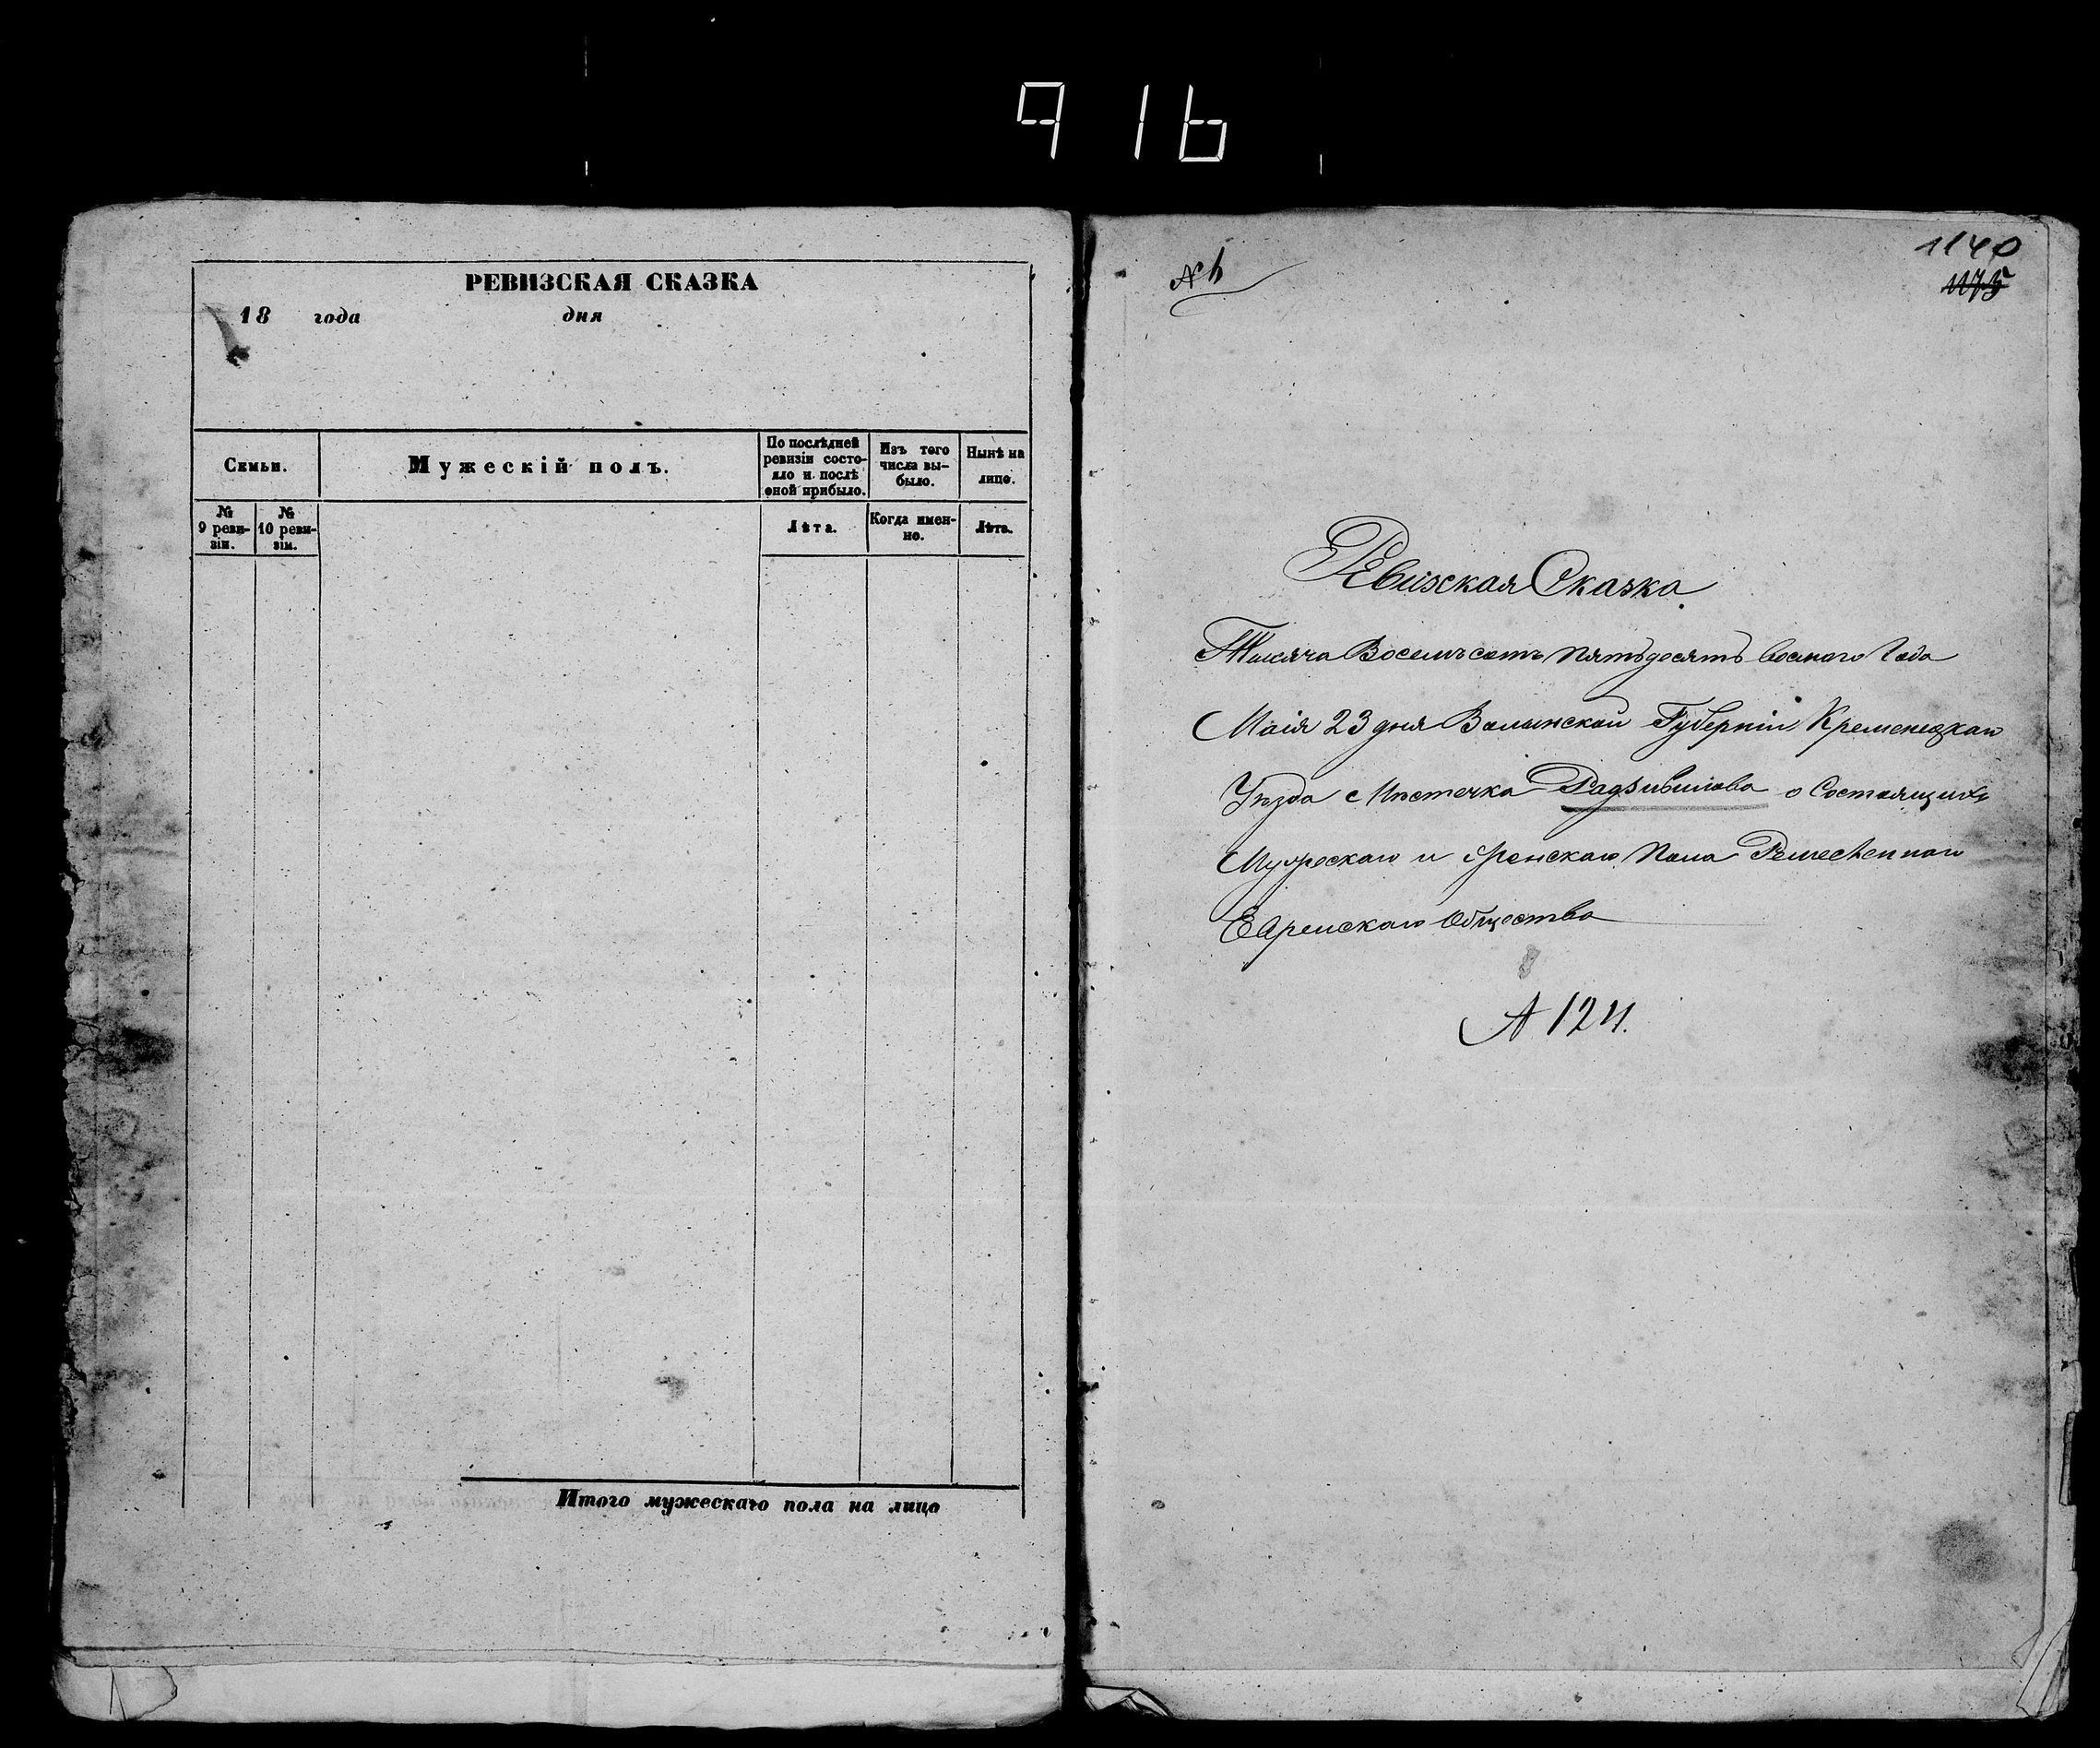 916
РЕВИЗСКАЯ СКАЗКА
18 года дня
Семьи.
Мужескій полъ.
По послѣдней ревизіи состояло и послѣ оной прибыло.
Изъ того числа выбыло.
Нынѣ на лицо.
№ 9 ревизіи.
№ 10 ревизіи.
Лѣта.
Когда именно.
Лѣта.
Итого мужескаго пола на лицо
1140
1175
Ревизская Сказка
Тысяча Восемьсотъ пятьдесятъ восмого Года
Маія 23 дня Волынской Губерніи Кременецкаго
Уѣзда Мѣстечка Радзивилова о Состоящихъ
Мужескаго и Женскаго Пола Ремесленного
Еврейскаго Общества